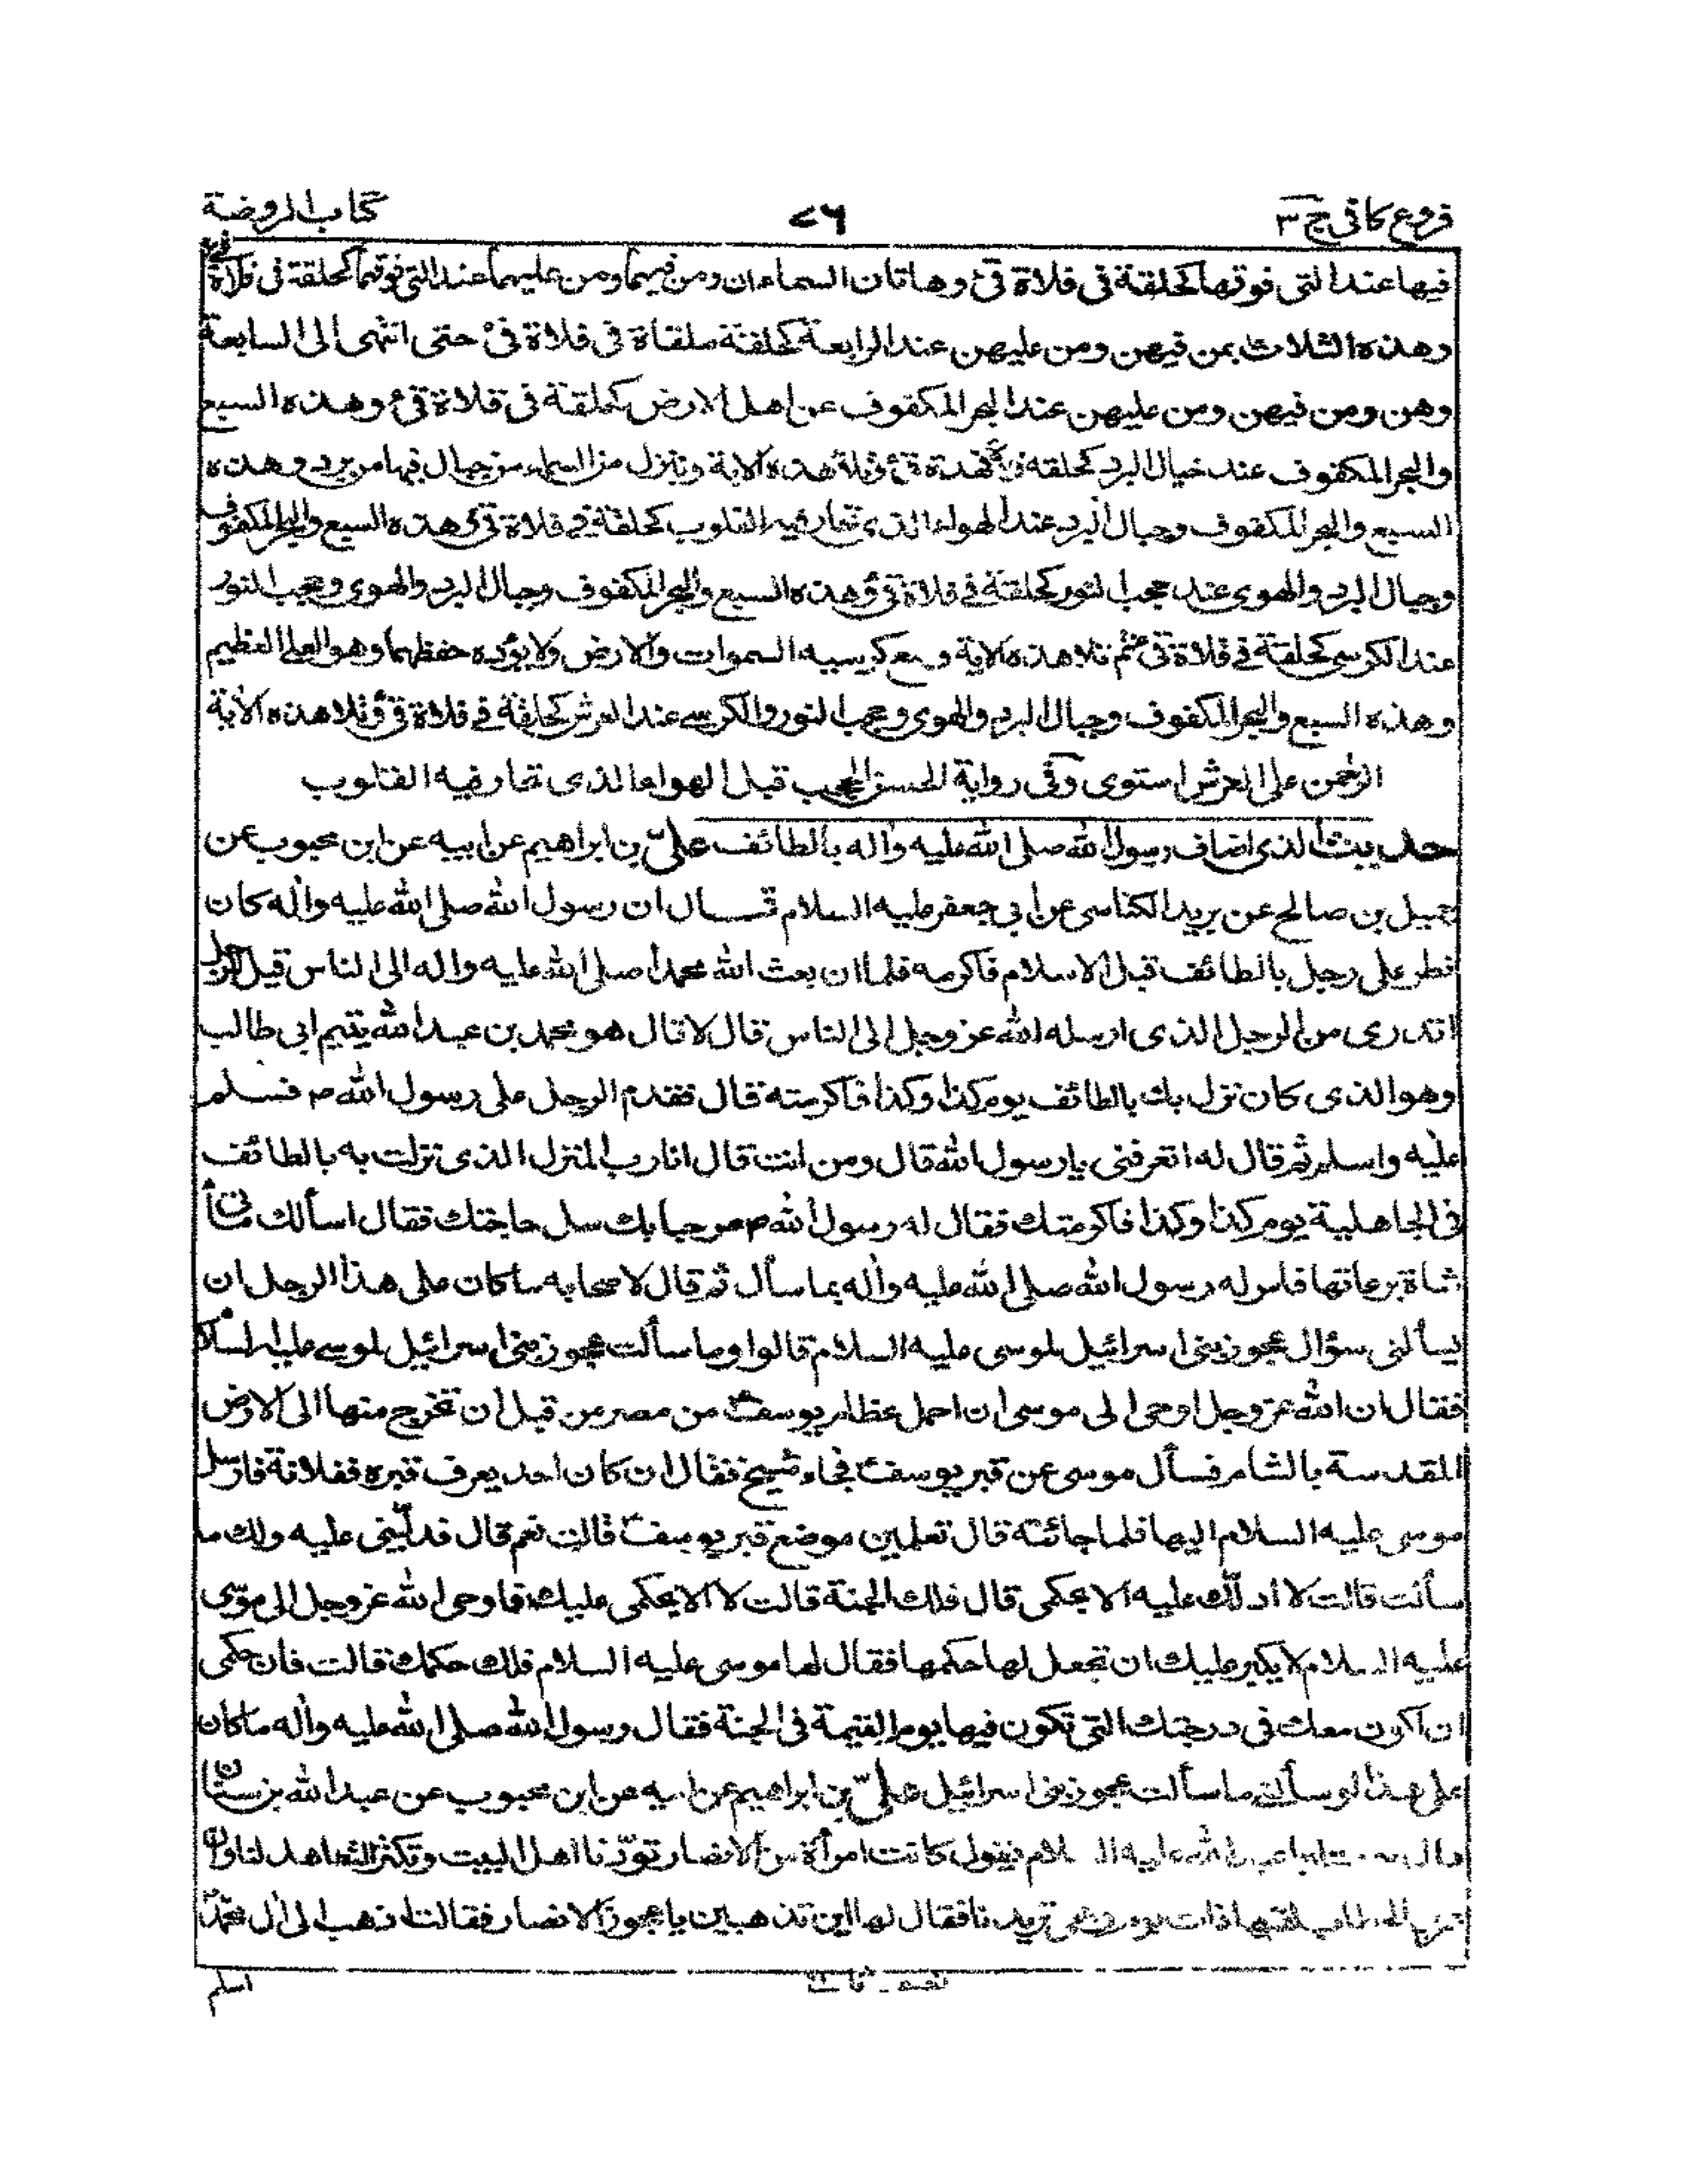 فروع كافى ج ٣
٧٦
كتاب الروضة
فيها عند التى فوقها كحلقة فى فلاة قئ وهاتان السماءان ومن فيهما ومن عليهما عند التى فوقهما كحلقة فى فلاة قئ
وهذه الثلاث بمن فيهن ومن عليهن عند الرابعة كحلقة ملقاة فى فلاة قئ حتى انتهى الى السابعة
وهن ومن فيهن ومن عليهن عند البحر المكفوف عن اهل الارض كحلقة فى فلاة قئ وهذه السبع
والبحر المكفوف عند جبال البرد كحلقة فى فلاة قئ وتلا هذه الاية وينزل من السماء من جبال فيها من برد وهذه
السبع والبحر المكفوف وجبال البرد عند الهواء الذى تحار فيه القلوب كحلقة فى فلاة قئ وهذه السبع والبحر المكفوف
وجبال البرد والهوى عند حجب النور كحلقة فى فلاة قئ وهذه السبع والبحر المكفوف وجبال البرد والهوى وحجب النور
عند الكرسى كحلقة فى فلاة قئ ثم تلا هذه الاية وسع كرسيه السموات والارض ولا يؤده حفظهما وهو العلى العظيم
وهذه السبع والبحر المكفوف وجبال البرد والهوى وحجب النور والكرسى عند العرش كحلقة فى فلاة قئ وتلا هذه الاية
الرحمن على العرش استوى وفى رواية الحسن الحجب قبل الهواء الذى تحار فيه القلوب
حديث الذى اضاف رسول الله صلى الله عليه واله بالطائف علىّ بن ابراهيم عن ابيه عن ابن محبوب عن
جميل بن صالح عن بريد الكناسى عن ابى جعفر عليه السلام قال ان رسول الله صلى الله عليه واله كان
نطر على رجل بالطائف قبل الاسلام فاكرمه فلما ان بعث الله محمدا صلى الله عليه واله الى الناس قيل للرجل
اتدرى من الرجل الذى ارسله الله عز وجل الى الناس قال لا قال هو محمد بن عبد الله يتيم ابى طالب
وهو الذى كان نزل بك بالطائف يوم كذا وكذا فاكرمته قال فقدم الرجل على رسول الله ص فسلم
عليه واسلم ثم قال له اتعرفنى يا رسول الله قال ومن انت قال انا رب المنزل الذى نزلت به بالطائف
فى الجاهلية يوم كذا وكذا فاكرمتك فقال له رسول الله ص مرحبا بك سل حاجتك فقال اسألك مائتى
شاة برعاتها فامر له رسول الله صلى الله عليه واله بما سأل ثم قال لاصحابه ما كان على هذا الرجل ان
يسألنى سؤال عجوز بنى اسرائيل لموسى عليه السلام قالوا وما سألت عجوز بنى اسرائيل لموسى عليه السلام
فقال ان الله عز وجل اوحى الى موسى ان احمل عظام يوسف من مصر من قبل ان تخرج منها الى الارض
المقدسة بالشام فسأل موسى عن قبر يوسف فجاء شيخ فقال ان كان احد يعرف قبره ففلانة فارسل
موسى عليه السلام اليها فلما جائته قال تعلمين موضع قبر يوسف قالت نعم قال فدلّينى عليه ولك ما
سألت قالت لا ادلّك عليه الا بحكمى قال فلك الجنة قالت لا الا بحكمى عليك فاوحى الله عز وجل الى موسى
عليه السلام لا يكبر عليك ان تجعل لها حكمها فقال لها موسى عليه السلام فلك حكمك قالت فان حكمى
ان اكون معك فى درجتك التى تكون فيها يوم القيمة فى الجنة فقال رسول الله صلى الله عليه واله ما كان
على هذا لو سألنى ما سألت عجوز بنى اسرائيل علىّ بن ابراهيم عن ابيه عن ابن محبوب عن عبد الله بن سنان
قال سمعت ابا عبد الله عليه السلام يقول كانت امرأة من الانصار تودّنا اهل البيت وتكثر التعاهد لنا وان
عمر بن الخطاب لقيها ذات يوم وهى تريدنا فقال لها اين تذهبين يا عجوز الانصار فقالت اذهب الى ال محمد
اسلم